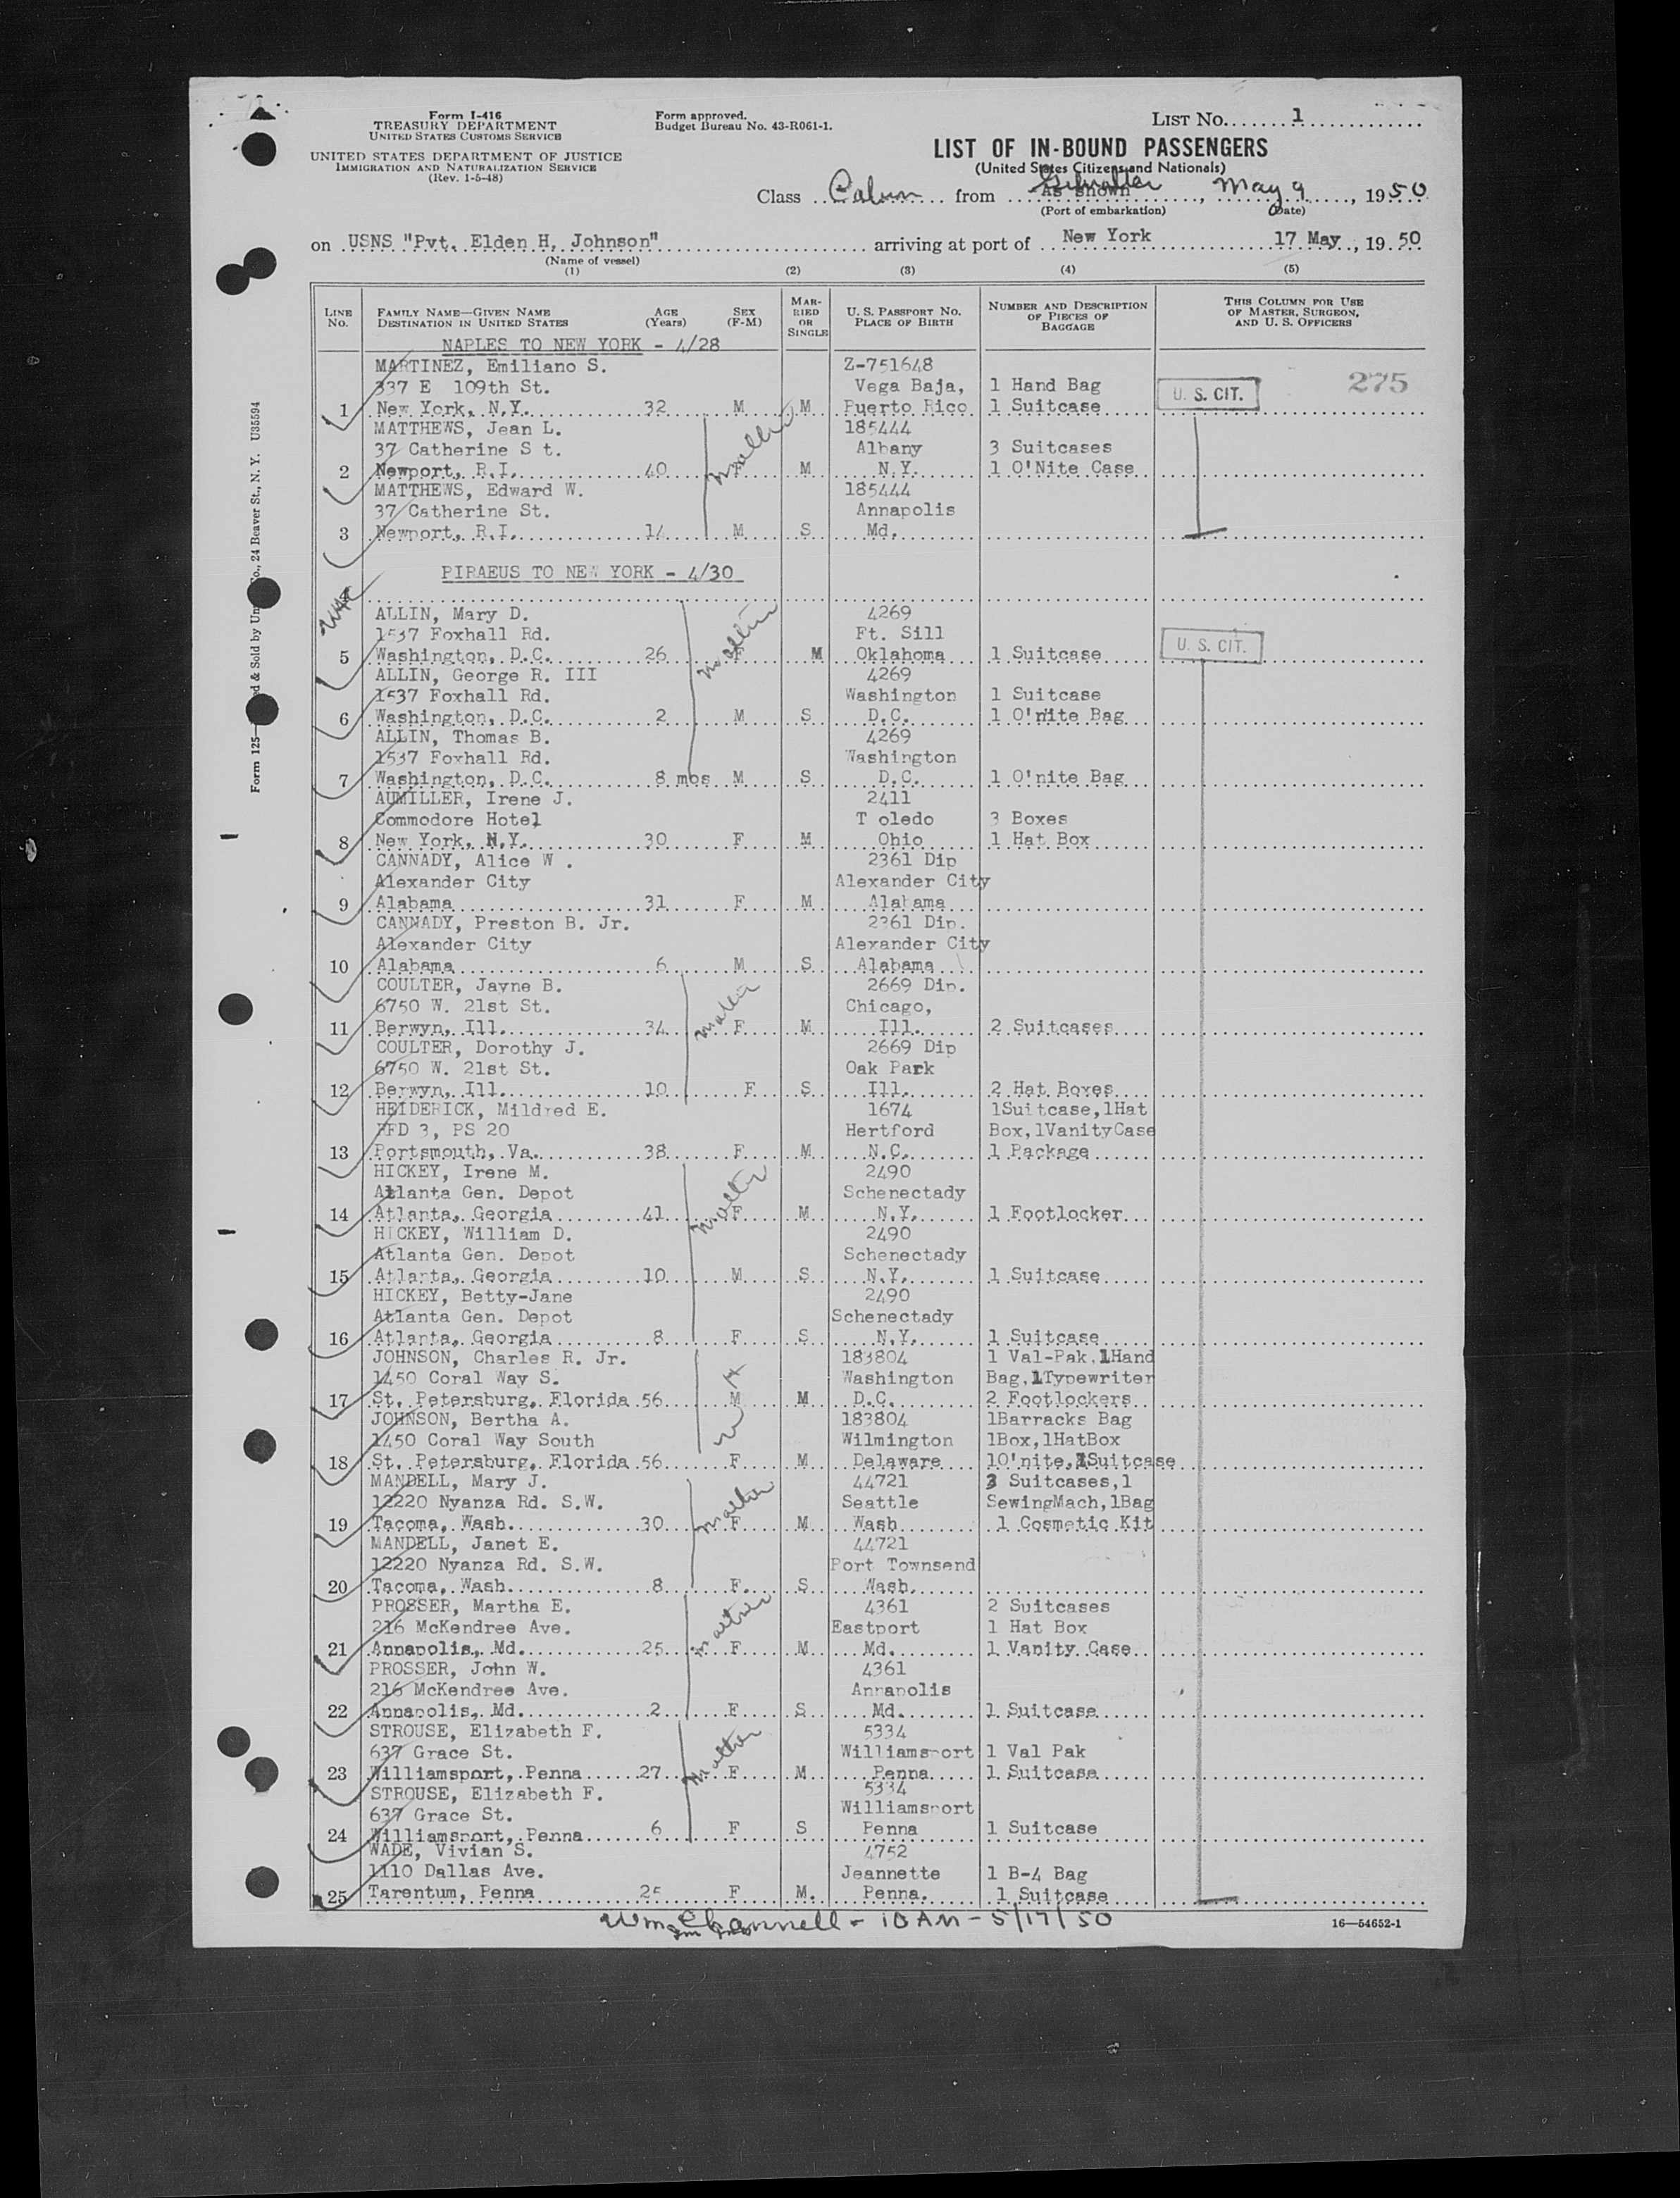 Form I-416
TREASURY DEPARTMENT
UNITED STATES CUSTOMS SERVICE
UNITED STATES DEPARTMENT OF JUSTICE
IMMIGRATION AND NATURALIZATION SERVICE
(Rev. 1-5-48)
Form approved.
Budget Bureau No. 43-R061-1.
LIST No. 1
LIST OF IN-BOUND PASSENGERS
(United States Citizens and Nationals)
Class Cabin from As shown Gibraltar, May 9, 1950
(Port of embarkation) (Date)
on USNS "Pvt. Elden H. Johnson" arriving at port of New York 17 May, 19 50
(Name of vessel)
(1) (2) (3) (4) (5)
LINE No. FAMILY NAME—GIVEN NAME DESTINATION IN UNITED STATES AGE (Years) SEX (F-M) MARRIED OR SINGLE U. S. PASSPORT No. PLACE OF BIRTH NUMBER AND DESCRIPTION OF PIECES OF BAGGAGE THIS COLUMN FOR USE OF MASTER, SURGEON, AND U. S. OFFICERS
NAPLES TO NEW YORK - 4/28
MARTINEZ, Emiliano S. Z-751648
337 E 109th St. Vega Baja, 1 Hand Bag U. S. CIT. 275
1 New York, N.Y. 32 M M Puerto Rico 1 Suitcase
MATTHEWS, Jean L. 185444
37 Catherine S t. Albany 3 Suitcases
2 Newport, R.I. 40 F M N.Y. 1 O'Nite Case
MATTHEWS, Edward W. 185444
37 Catherine St. Annapolis
3 Newport, R.I. 14 M S Md.
PIRAEUS TO NEW YORK - 4/30
4
ALLIN, Mary D. 4269
1537 Foxhall Rd. Ft. Sill U. S. CIT.
5 Washington, D.C. 26 F M Oklahoma 1 Suitcase
ALLIN, George R. III 4269
1537 Foxhall Rd. Washington 1 Suitcase
6 Washington, D.C. 2 M S D.C. 1 O'nite Bag
ALLIN, Thomas B. 4269
1537 Foxhall Rd. Washington
7 Washington, D.C. 8 mos M S D.C. 1 O'nite Bag
AUMILLER, Irene J. 2411
Commodore Hotel T oledo 3 Boxes
8 New York, N.Y. 30 F M Ohio 1 Hat Box
CANNADY, Alice W . 2361 Dip
Alexander City Alexander City
9 Alabama 31 F M Alabama
CANNADY, Preston B. Jr. 2361 Dip.
Alexander City Alexander City
10 Alabama 6 M S Alabama
COULTER, Jayne B. 2669 Dip.
6750 W. 21st St. Chicago,
11 Berwyn, Ill. 34 F M Ill. 2 Suitcases
COULTER, Dorothy J. 2669 Dip
6750 W. 21st St. Oak Park
12 Berwyn, Ill. 10 F S Ill. 2 Hat Boxes
HEIDERICK, Mildred E. 1674 1Suitcase,1Hat
RFD 3, PS 20 Hertford Box,1VanityCase
13 Portsmouth, Va. 38 F M N.C. 1 Package
HICKEY, Irene M. 2490
Atlanta Gen. Depot Schenectady
14 Atlanta, Georgia 41 F M N.Y. 1 Footlocker
HICKEY, William D. 2490
Atlanta Gen. Depot Schenectady
15 Atlanta, Georgia 10 M S N.Y. 1 Suitcase
HICKEY, Betty-Jane 2490
Atlanta Gen. Depot Schenectady
16 Atlanta, Georgia 8 F S N.Y. 1 Suitcase
JOHNSON, Charles R. Jr. 183804 1 Val-Pak,1Hand
1450 Coral Way S. Washington Bag,1Typewriter
17 St. Petersburg, Florida 56 M M D.C. 2 Footlockers
JOHNSON, Bertha A. 183804 1Barracks Bag
1450 Coral Way South Wilmington 1Box,1HatBox
18 St. Petersburg, Florida 56 F M Delaware 1O'nite,1Suitcase
MANDELL, Mary J. 44721 3 Suitcases,1
12220 Nyanza Rd. S.W. Seattle SewingMach,1Bag
19 Tacoma, Wash. 30 F M Wash 1 Cosmetic Kit
MANDELL, Janet E. 44721
12220 Nyanza Rd. S.W. Port Townsend
20 Tacoma, Wash. 8 F. S Wash.
PROSSER, Martha E. 4361 2 Suitcases
216 McKendree Ave. Eastport 1 Hat Box
21 Annapolis, Md. 25 F M Md. 1 Vanity Case
PROSSER, John W. 4361
216 McKendree Ave. Annapolis
22 Annapolis, Md. 2 F S Md. 1 Suitcase
STROUSE, Elizabeth F. 5334
637 Grace St. Williamsport 1 Val Pak
23 Williamsport, Penna 27 F M Penna 1 Suitcase
STROUSE, Elizabeth F. 5334
637 Grace St. Williamsport
24 Williamsport, Penna 6 F S Penna 1 Suitcase
WADE, Vivian S. 4752
1110 Dallas Ave. Jeannette 1 B-4 Bag
25 Tarentum, Penna 25 F M. Penna. 1 Suitcase
Wm Channell - 10 AM - 5/17/50
16—54652-1